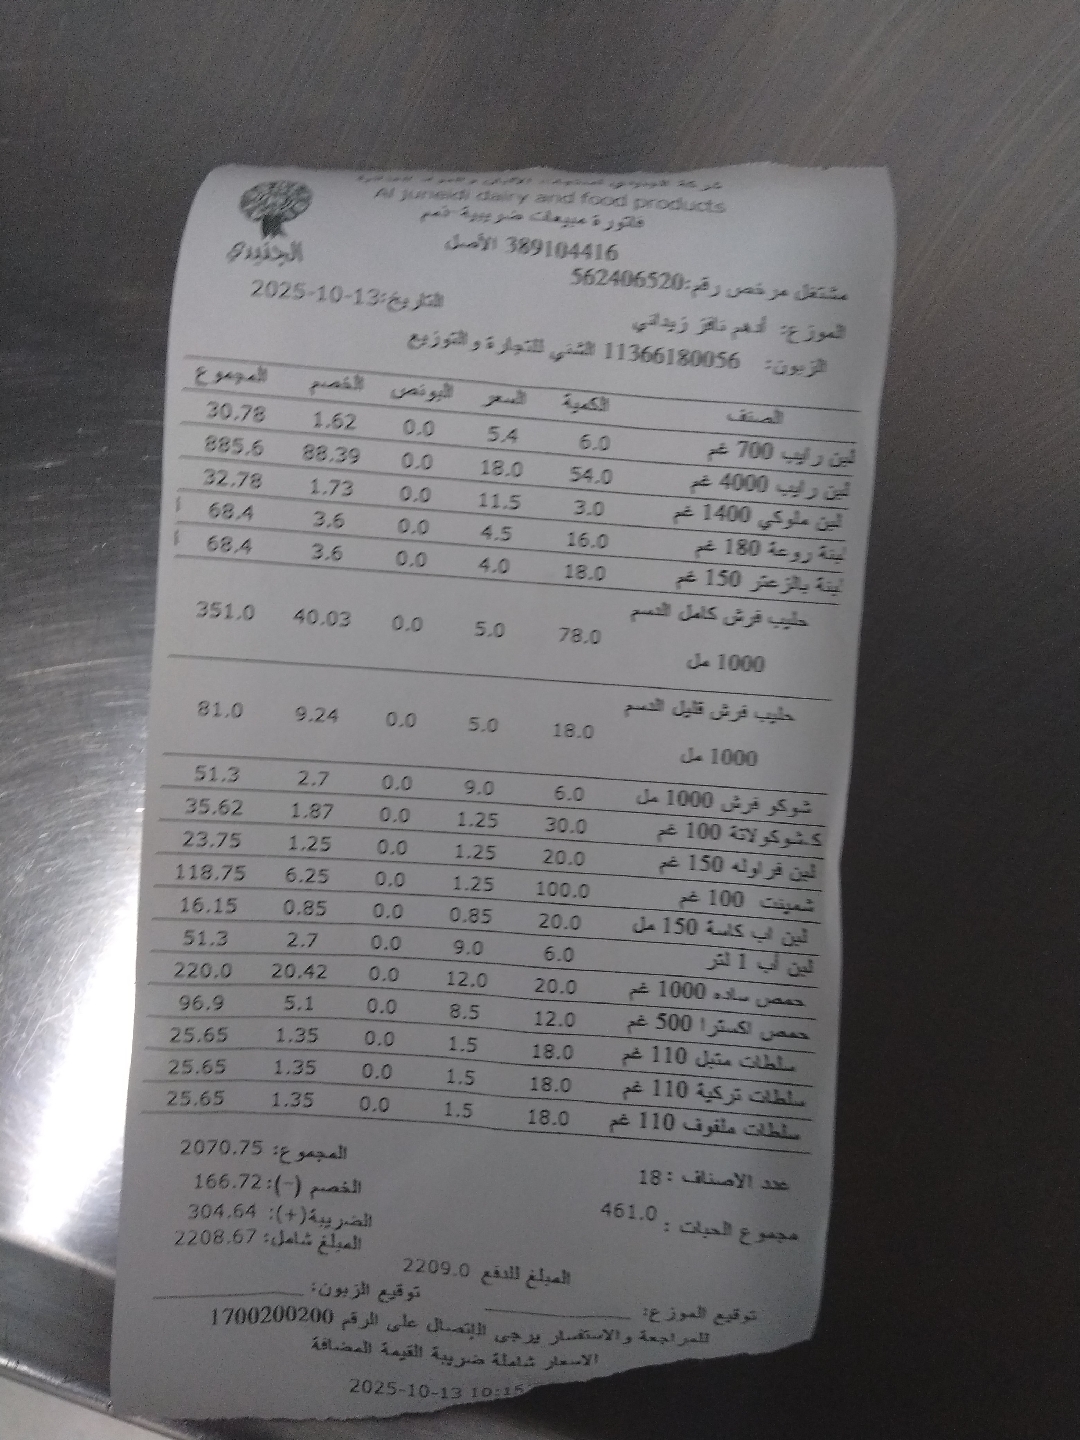 شركة الجنيدي لمنتجات الألبان والمواد الغذائية
Al juneidi dairy and food products
فاتورة مبيعات ضريبية-ذمم
الجنيدي
389104416 الأصل
مشتغل مرخص رقم:562406520
التاريخ:2025-10-13
الموزع: أدهم نافز زيداني
الزبون: 11366180056 الشني للتجارة والتوزيع
الصنف الكمية السعر البونص الخصم المجموع
لبن رايب 700 غم 6.0 5.4 0.0 1.62 30.78
لبن رايب 4000 غم 54.0 18.0 0.0 88.39 885.6
لبن ملوكي 1400 غم 3.0 11.5 0.0 1.73 32.78
لبنة روعة 180 غم 16.0 4.5 0.0 3.6 68.4
لبنة بالزعتر 150 غم 18.0 4.0 0.0 3.6 68.4
حليب فرش كامل الدسم 78.0 5.0 0.0 40.03 351.0
1000 مل
حليب فرش قليل الدسم 18.0 5.0 0.0 9.24 81.0
1000 مل
شوكو فرش 1000 مل 6.0 9.0 0.0 2.7 51.3
ك.شوكولاتة 100 غم 30.0 1.25 0.0 1.87 35.62
لبن فراوله 150 غم 20.0 1.25 0.0 1.25 23.75
شمينت 100 غم 100.0 1.25 0.0 6.25 118.75
لبن اب كاسة 150 مل 20.0 0.85 0.0 0.85 16.15
لبن أب 1 لتر 6.0 9.0 0.0 2.7 51.3
حمص ساده 1000 غم 20.0 12.0 0.0 20.42 220.0
حمص اكسترا 500 غم 12.0 8.5 0.0 5.1 96.9
سلطات متبل 110 غم 18.0 1.5 0.0 1.35 25.65
سلطات تركية 110 غم 18.0 1.5 0.0 1.35 25.65
سلطات ملفوف 110 غم 18.0 1.5 0.0 1.35 25.65
المجموع: 2070.75
عدد الاصناف : 18
الخصم (-): 166.72
مجموع الحبات : 461.0
الضريبة(+): 304.64
المبلغ شامل: 2208.67
المبلغ للدفع 2209.0
توقيع الزبون:
توقيع الموزع:
للمراجعة والاستفسار يرجى الإتصال على الرقم 1700200200
الاسعار شاملة ضريبة القيمة المضافة
2025-10-13 10:15